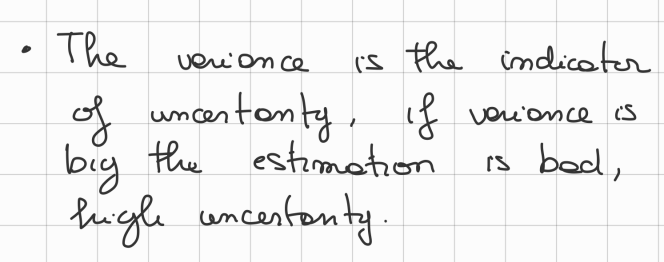 • The variance is the indicator
of uncertanty, if variance is
big the estimation is bad,
high uncertanty.